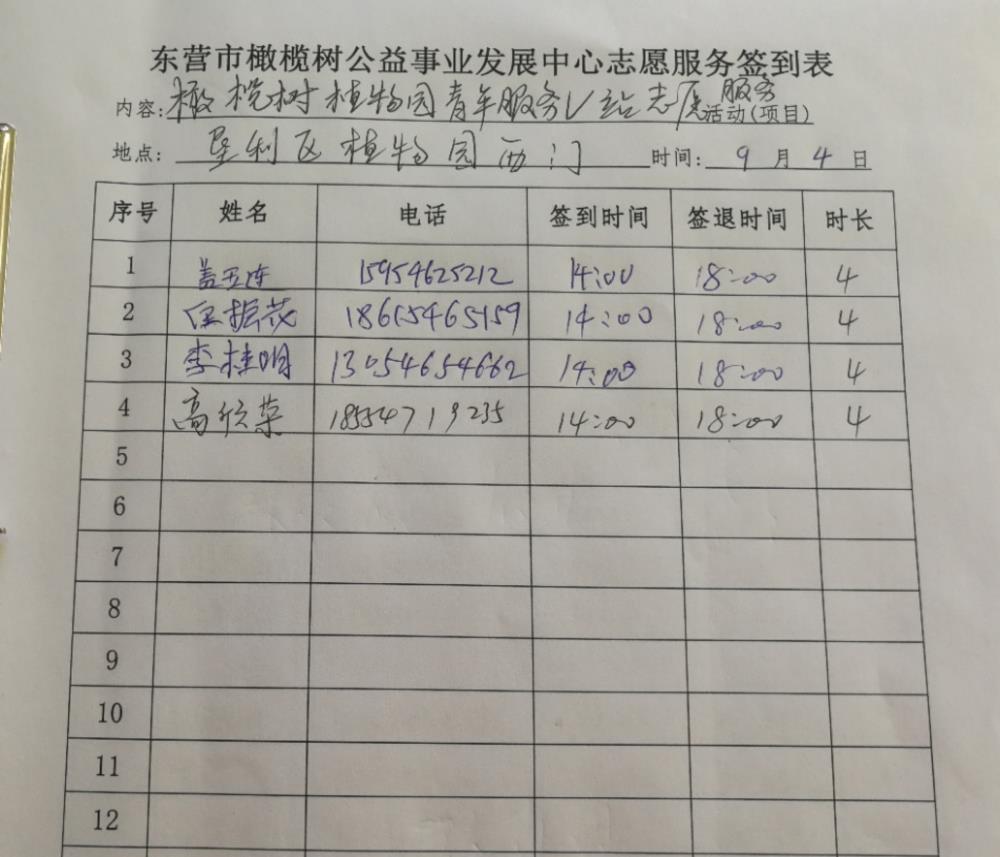 东营市橄榄树公益事业发展中心志愿服务签到表
内容:橄榄树植物园青年服务V站志愿服务活动(项目)
地点: 垦利区植物园西门 时间: 9 月 4 日
序号 姓名 电话 签到时间 签退时间 时长
1 盖玉连 15954625212 14:00 18:00 4
2 任振花 18615465159 14:00 18:00 4
3 李桂明 13054654662 14:00 18:00 4
4 高欣荣 18554719235 14:00 18:00 4
5
6
7
8
9
10
11
12